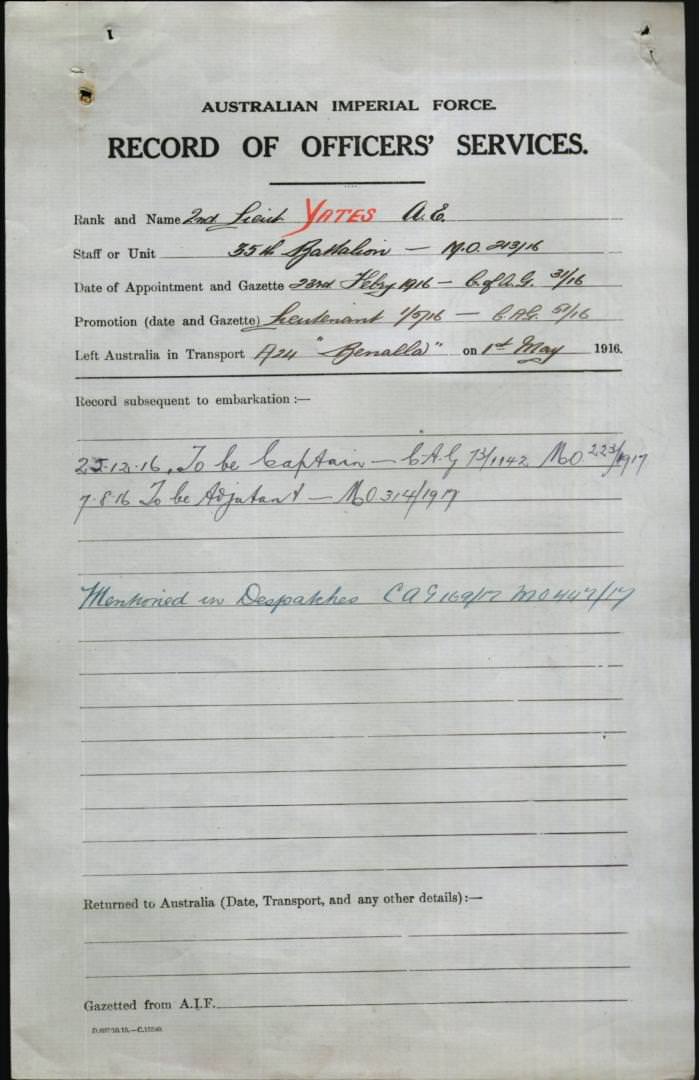 1
AUSTRALIAN IMPERIAL FORCE.
RECORD OF OFFICERS' SERVICES.
Rank and Name 2nd Lieut YATES A.E.
Staff or Unit 35th Battalion — M.O. 213/16
Date of Appointment and Gazette 23rd Febry 1916 — C. of A.G. 31/16
Promotion (date and Gazette) Lieutenant 1/5/16 — C.A.G. 51/16
Left Australia in Transport A24 "Benalla" on 1st May 1916.
Record subsequent to embarkation :—
25.12.16. To be Captain — C.A.G 73/1142 MO 223/1917
7.8.16 To be Adjutant — MO 314/1917
Mentioned in Despatches C A G 169/17 MO 447/17
Returned to Australia (Date, Transport, and any other details) :—
Gazetted from A.I.F.